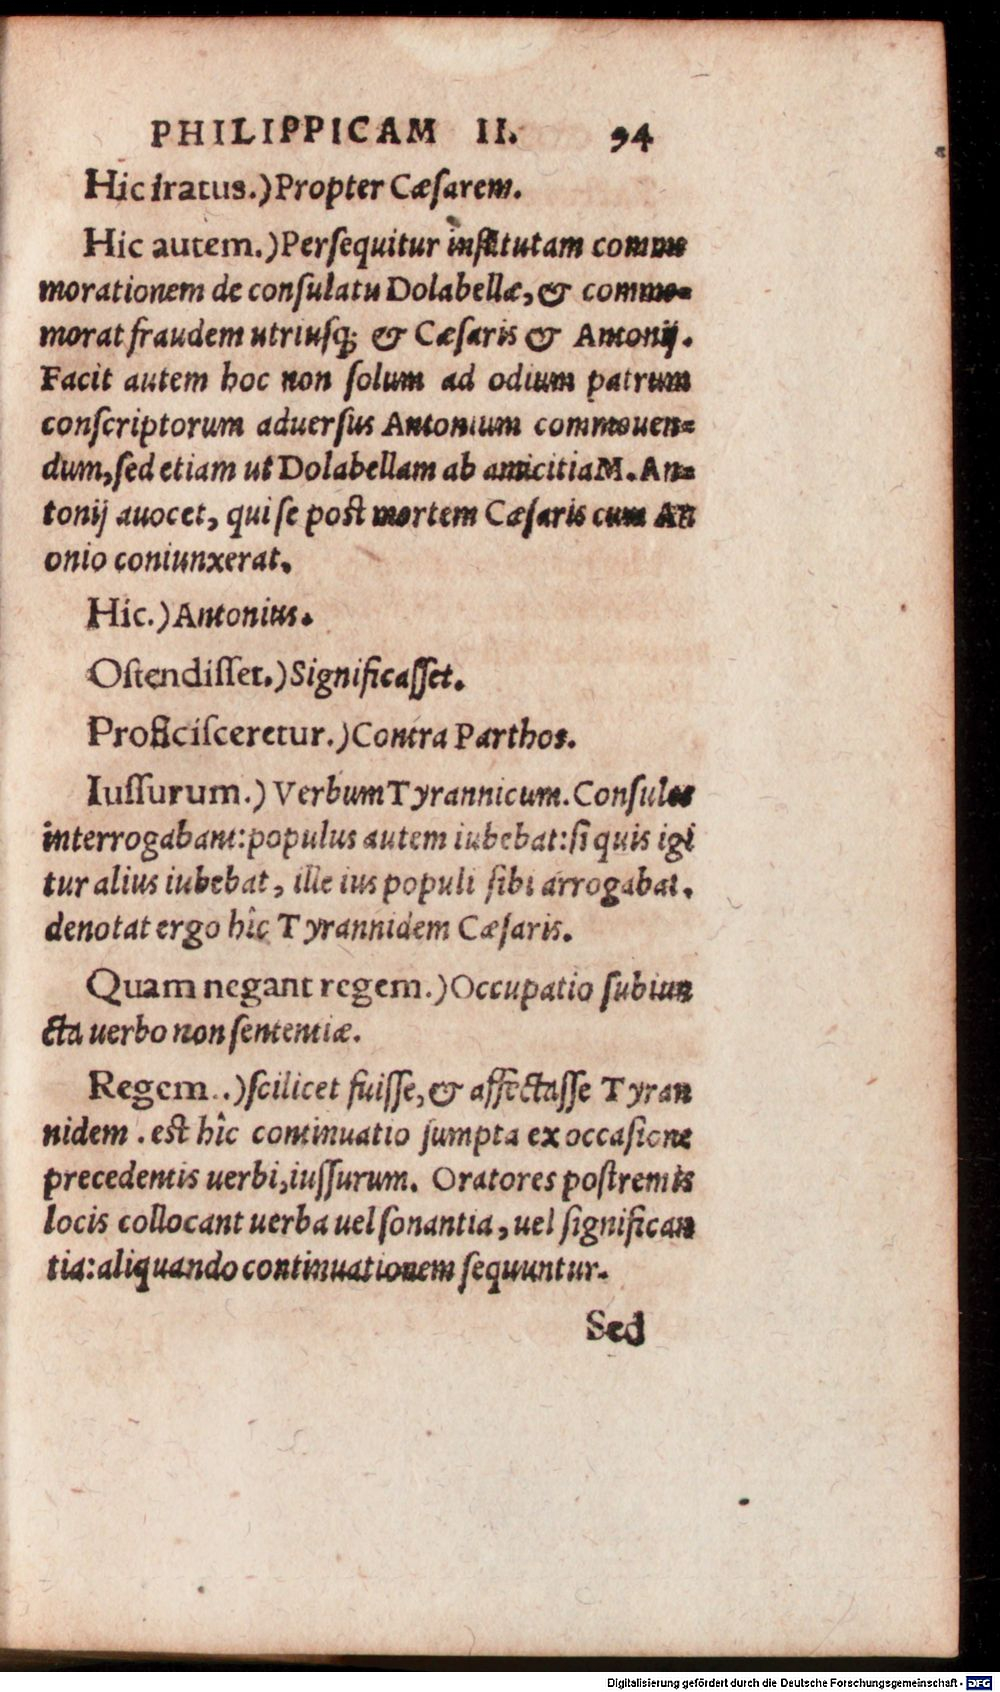 PHILIPPICAM II. 94
Hic iratus.) Propter Cæſarem.
Hic autem.) Perſequitur inſtitutam comme
morationem de conſulatu Dolabellæ, & commo=
morat fraudem utriuſq; & Cæſaris & Antonij.
Facit autem hoc non ſolum ad odium patrum
conſcriptorum aduerſus Antonium commouen=
dum, ſed etiam ut Dolabellam ab amicitia M. An=
tonij auocet, qui ſe poſt mortem Cæſaris cum An
onio coniunxerat.
Hic.) Antonius.
Oſtendiſſet.) Significaſſet.
Proficiſceretur.) Contra Parthos.
Iuſſurum.) Verbum Tyrannicum. Conſules
interrogabant: populus autem iubebat: ſi quis igi
tur alius iubebat, ille ius populi ſibi arrogabat.
denotat ergo hîc Tyrannidem Cæſaris.
Quam negant regem.) Occupatio ſubiun
cta uerbo non ſententiæ.
Regem..) ſcilicet fuiſſe, & affectaſſe Tyran
nidem. eſt hîc continuatio ſumpta ex occaſione
precedentis uerbi, iuſſurum. Oratores poſtremis
locis collocant uerba uel ſonantia, uel ſignifican
tia: aliquando continuationem ſequuntur.
Sed
Digitalisierung gefördert durch die Deutsche Forschungsgemeinschaft - DFG